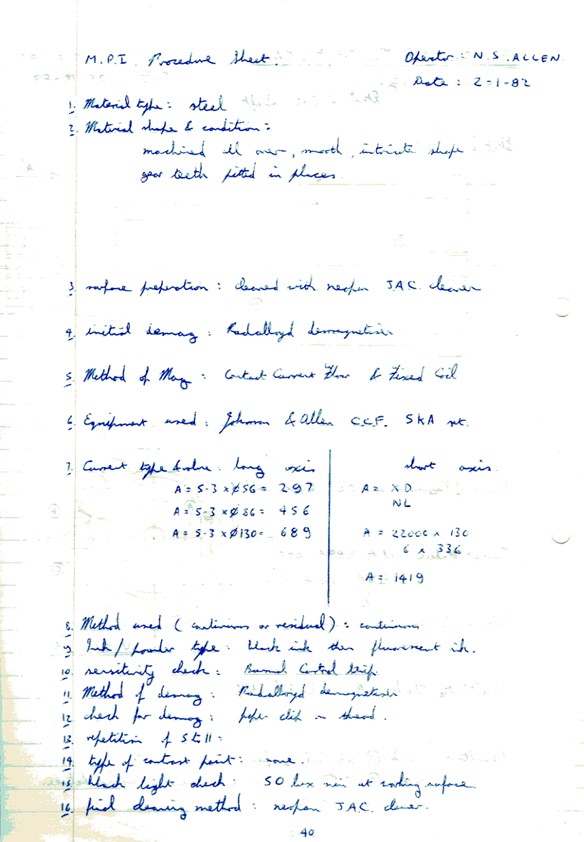 M.P.I Procedure Sheet. Operator: N.S. ALLEN
Date: 2-1-82
1. Material type: steel
2. Material shape & condition:
machined all over, smooth, intricate shape
gear teeth pitted in places
3. surface preparation: cleaned with neopen J.A.C. cleaner
4. initial demag: Radalloyd demagnetiser
5. Method of Mag: Contact Current Flow & Fixed Coil
6. Equipment used: Johnson & Allen C.C.F. 5KA set.
7. Current type & value: long axis short axis
A = 5.3 x ø56 = 297 A = XD
A = 5.3 x ø86 = 456 NL
A = 5.3 x ø130 = 689 A = 22000 x 130
6 x 336
A = 1419
8. Method used (continuous or residual): continuous
9. Ink/powder type: black ink then fluorescent ink.
10. sensitivity check: Burmah Castrol Strip
11. Method of demag: Radalloyd demagnetiser
12. check for demag: paper clip on thread.
13. repetition of 5 to 11:
14. type of contact point: none.
15. black light check: 50 lux min at working surface
16. final cleaning method: neopen J.A.C. cleaner.
40